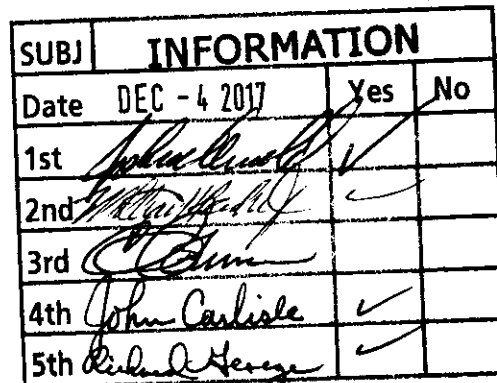 SUBJ INFORMATION
Date DEC - 4 2017 Yes No
1st ✓
2nd ✓
3rd
4th John Carlisle ✓
5th Richard ✓